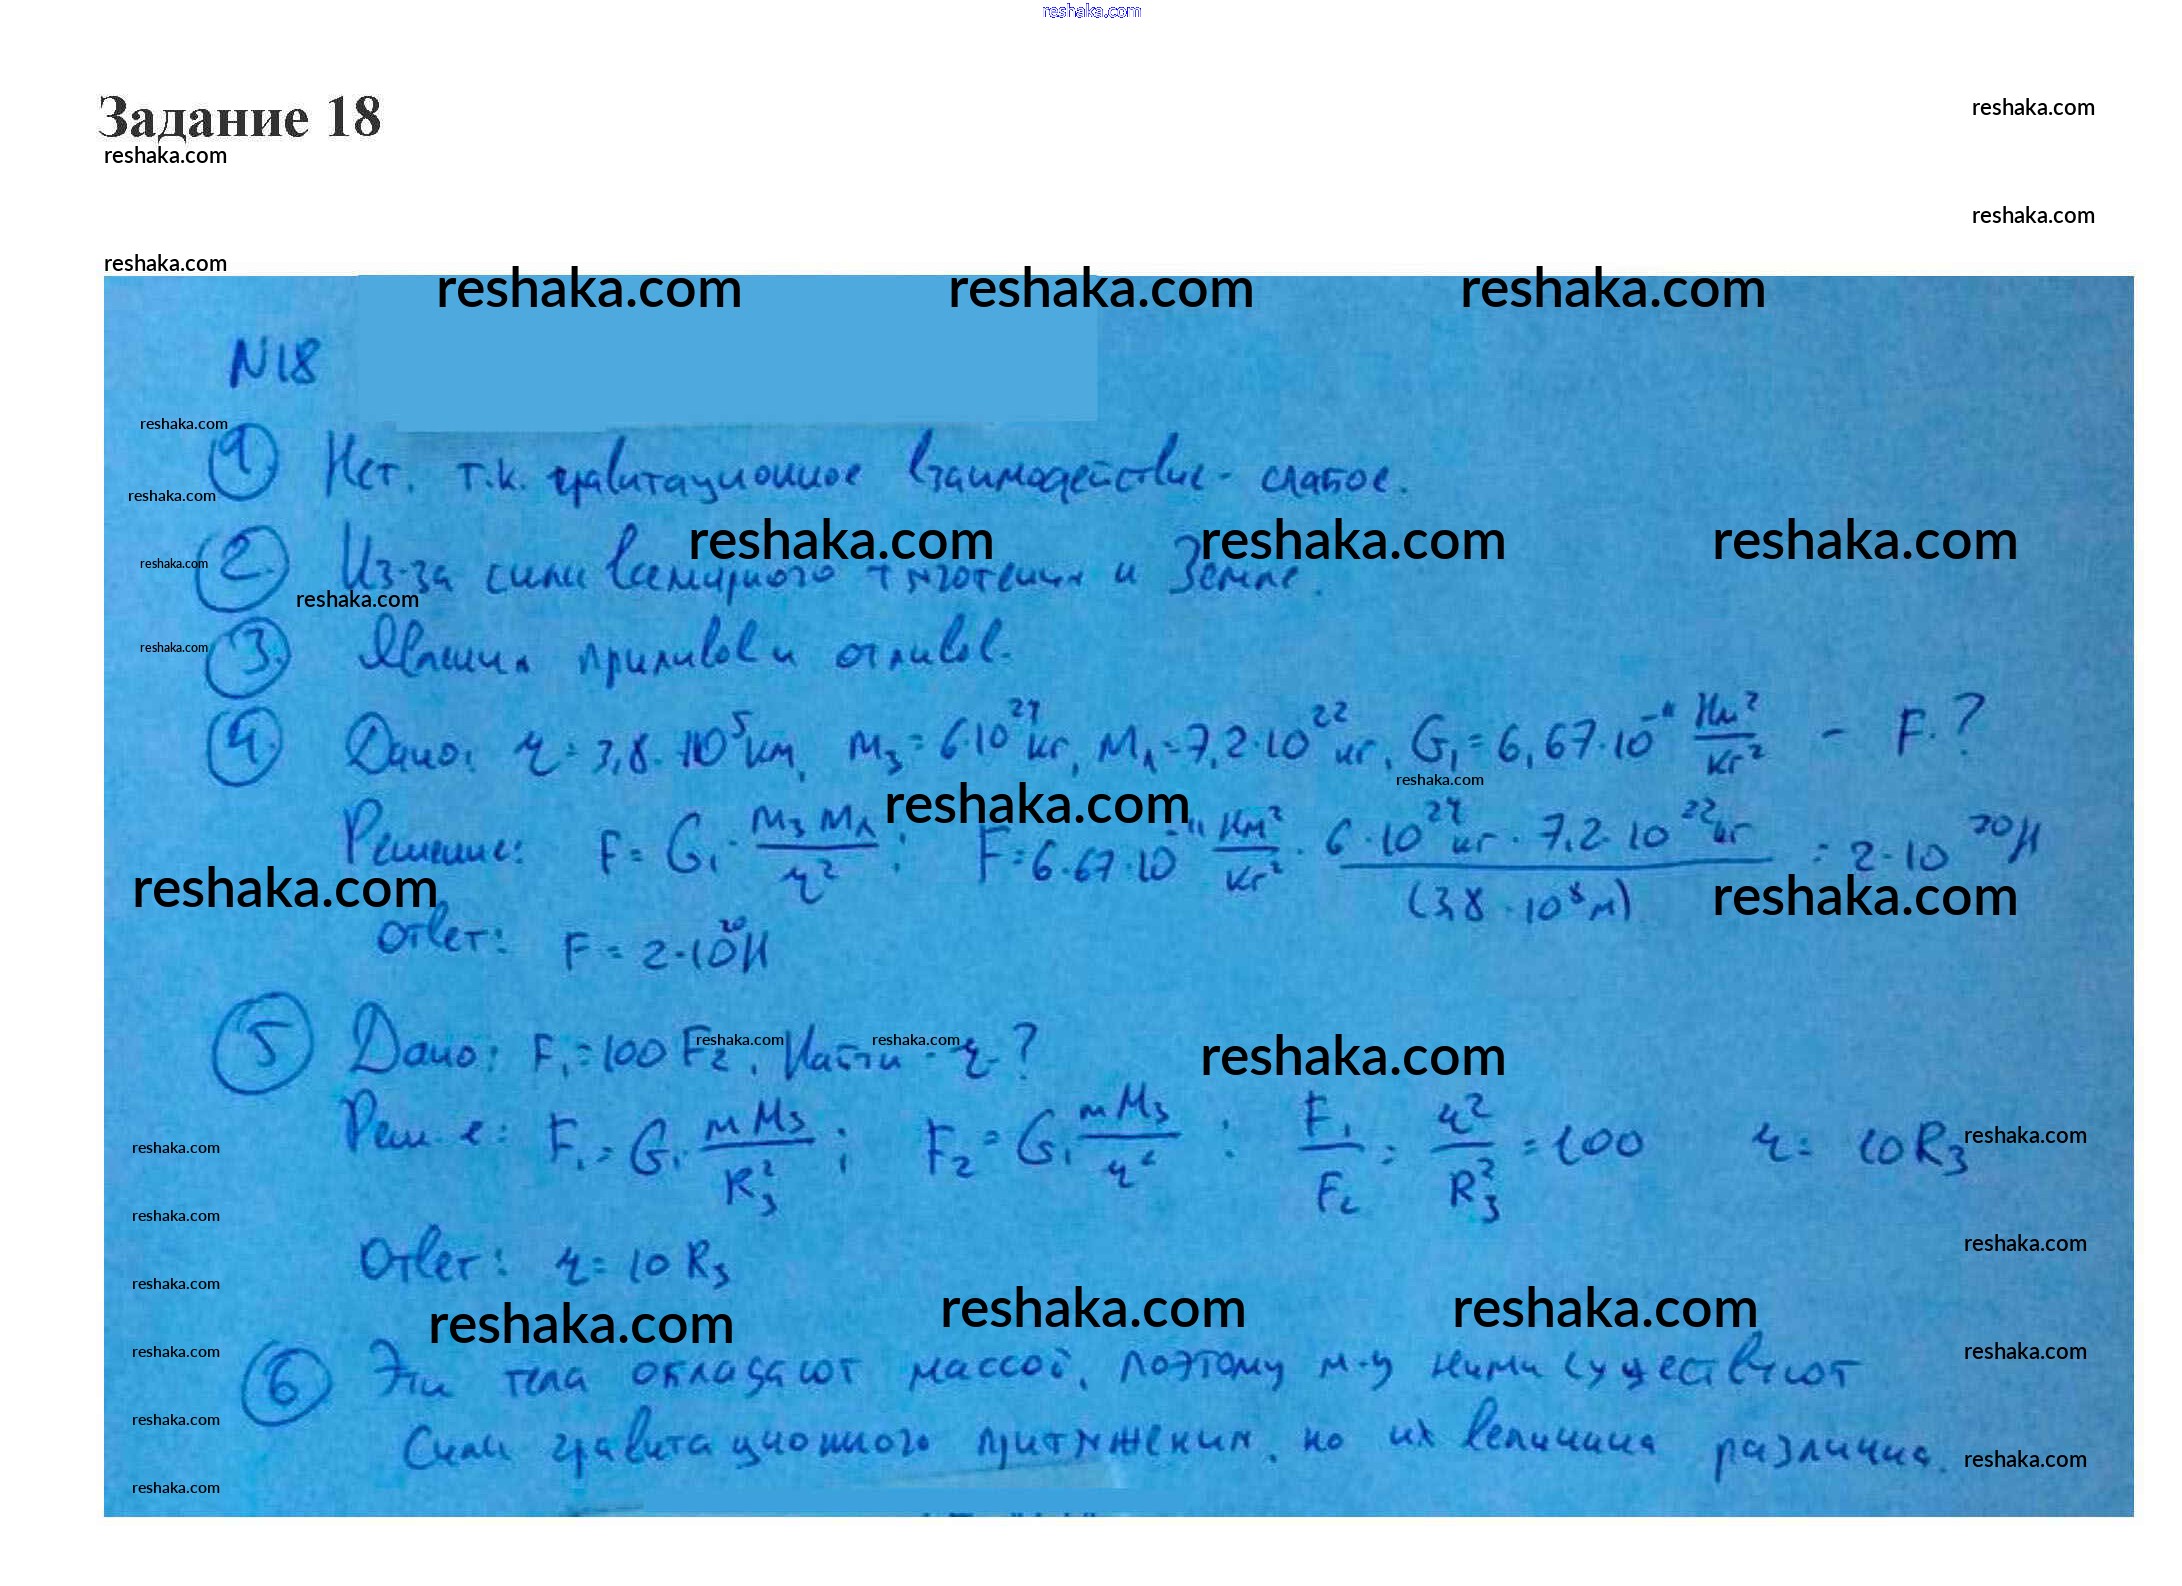 reshaka.com
Задание 18
reshaka.com
reshaka.com
reshaka.com
reshaka.com
reshaka.com reshaka.com reshaka.com
N18
reshaka.com
1. Нет. т.к. гравитационное взаимодействие - слабое.
reshaka.com
reshaka.com reshaka.com reshaka.com
2. Из-за силы всемирного тяготения и Земле.
reshaka.com
reshaka.com
3. Явления приливов и отливов.
reshaka.com
4. Дано: r = 3,8 · 10⁵ км, Mз = 6·10²⁴ кг, Mл = 7,2·10²² кг, G₁ = 6,67·10⁻¹¹ Нм²/кг² - F.?
reshaka.com
reshaka.com
Решение: F = G₁ · MзMл/r² ; F = 6.67·10⁻¹¹ Нм²/кг² · 6·10²⁴ кг · 7,2·10²² кг/(3,8·10⁸ м) = 2·10²⁰ Н
reshaka.com reshaka.com
Ответ: F = 2·10²⁰ Н
5 Дано: F₁ = 100 F₂, Найти - r.?
reshaka.com reshaka.com reshaka.com
Реш-е: F₁ = G₁ mMз/Rз² ; F₂ = G₁ mMз/r² ; F₁/F₂ = r²/Rз² = 100 r = 10Rз
reshaka.com reshaka.com
reshaka.com
Ответ: r = 10 Rз
reshaka.com
reshaka.com
reshaka.com reshaka.com reshaka.com
6 Эти тела обладают массой, поэтому м-у ними существуют
reshaka.com reshaka.com
силы гравитационного притяжения, но их величина различна.
reshaka.com reshaka.com
reshaka.com